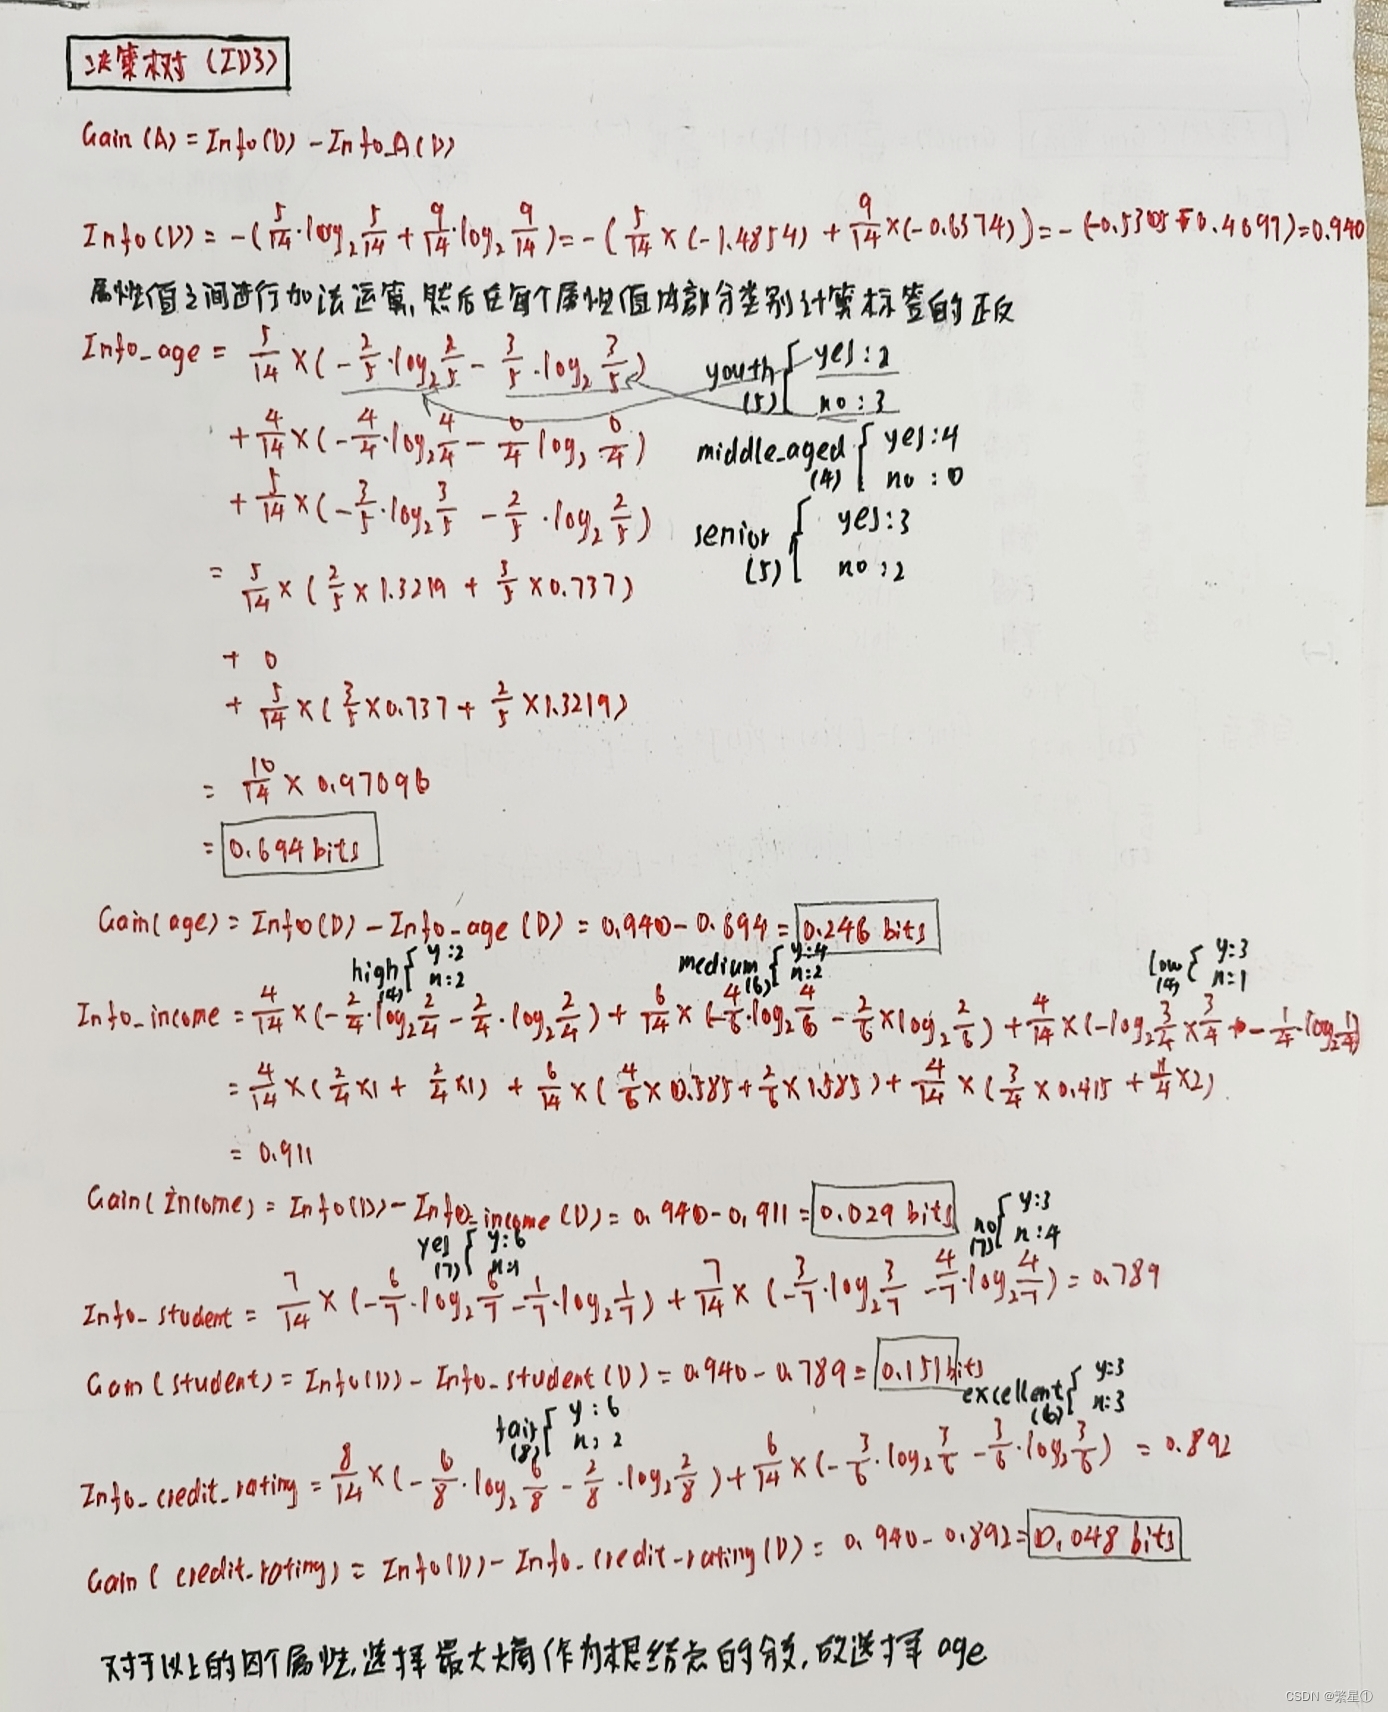 决策树(ID3)
Gain(A) = Info(D) - Info_A(D)
Info(D) = -(5/14·log₂5/14 + 9/14·log₂9/14) = -(5/14×(-1.4854) + 9/14×(-0.6374)) = -(-0.5305 + 0.4097) = 0.940
属性值之间进行加法运算,然后在每个属性值内部分类别计算标签的正反
Info_age = 5/14×(-2/5·log₂2/5 - 3/5·log₂3/5)
youth (5) { yes:2
no:3
+ 4/14×(-4/4·log₂4/4 - 0/4 log₂ 0/4)
middle_aged (4) { yes:4
no:0
+ 5/14×(-3/5·log₂3/5 - 2/5·log₂2/5)
senior (5) { yes:3
no:2
= 5/14×(2/5×1.3219 + 3/5×0.737)
+ 0
+ 5/14×(3/5×0.737 + 2/5×1.3219)
= 10/14×0.97096
= 0.694 bits
Gain(age) = Info(D) - Info_age(D) = 0.940 - 0.694 = 0.246 bits
high (4) { y:2 n:2
medium (6) { y:4 n:2
low (4) { y:3 n:1
Info_income = 4/14×(-2/4·log₂2/4 - 2/4·log₂2/4) + 6/14×(-4/6·log₂4/6 - 2/6×log₂2/6) + 4/14×(-log₂3/4×3/4 - 1/4·log₂1/4)
= 4/14×(2/4×1 + 2/4×1) + 6/14×(4/6×0.585 + 2/6×1.585) + 4/14×(3/4×0.415 + 1/4×2)
= 0.911
Gain(Income) = Info(D) - Info_income(D) = 0.940 - 0.911 = 0.029 bits
yes (7) { y:6 n:1
no (7) { y:3 n:4
Info_student = 7/14×(-6/7·log₂6/7 - 1/7·log₂1/7) + 7/14×(-3/7·log₂3/7 - 4/7·log₂4/7) = 0.789
Gain(student) = Info(D) - Info_student(D) = 0.940 - 0.789 = 0.151 bits
fair (8) { y:6 n:2
excellent (6) { y:3 n:3
Info_credit_rating = 8/14×(-6/8·log₂6/8 - 2/8·log₂2/8) + 6/14×(-3/6·log₂3/6 - 3/6·log₂3/6) = 0.892
Gain(credit_rating) = Info(D) - Info_credit_rating(D) = 0.940 - 0.892 = 0.048 bits
对于以上的四个属性,选择最大大熵作为根结点的分支,故选择age
CSDN @繁星①